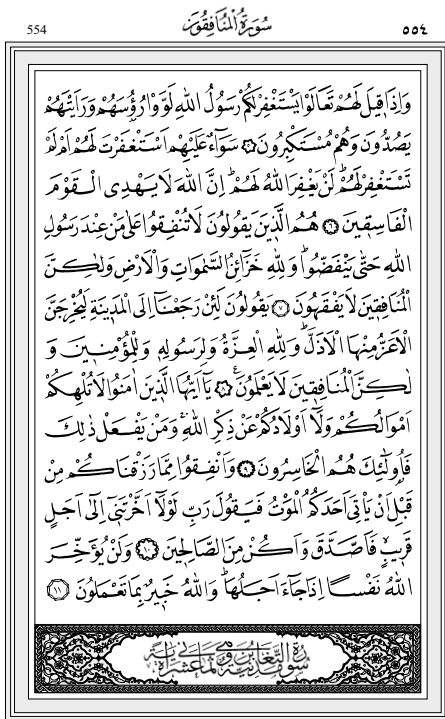 554 سُورَةُ الْمُنَافِقُونَ ٥٥٤
وَاِذَا قٖيلَ لَهُمْ تَعَالَوْا يَسْتَغْفِرْ لَكُمْ رَسُولُ اللّٰهِ لَوَّوْا رُؤُ۫سَهُمْ وَرَاَيْتَهُمْ
يَصُدُّونَ وَهُمْ مُسْتَكْبِرُونَ ﴿٥﴾ سَوَٓاءٌ عَلَيْهِمْ اَسْتَغْفَرْتَ لَهُمْ اَمْ لَمْ
تَسْتَغْفِرْ لَهُمْۜ لَنْ يَغْفِرَ اللّٰهُ لَهُمْۜ اِنَّ اللّٰهَ لَا يَهْدِي الْقَوْمَ
الْفَاسِقٖينَ ﴿٦﴾ هُمُ الَّذٖينَ يَقُولُونَ لَا تُنْفِقُوا عَلٰى مَنْ عِنْدَ رَسُولِ
اللّٰهِ حَتّٰى يَنْفَضُّواۜ وَلِلّٰهِ خَزَٓائِنُ السَّمٰوَاتِ وَالْاَرْضِ وَلٰكِنَّ
الْمُنَافِقٖينَ لَا يَفْقَهُونَ ﴿٧﴾ يَقُولُونَ لَئِنْ رَجَعْنَٓا اِلَى الْمَدٖينَةِ لَيُخْرِجَنَّ
الْاَعَزُّ مِنْهَا الْاَذَلَّۜ وَلِلّٰهِ الْعِزَّةُ وَلِرَسُولِهٖ وَلِلْمُؤْمِنٖينَ وَ
لٰكِنَّ الْمُنَافِقٖينَ لَا يَعْلَمُونَ ﴿٨﴾ يَٓا اَيُّهَا الَّذٖينَ اٰمَنُوا لَا تُلْهِكُمْ
اَمْوَالُكُمْ وَلَٓا اَوْلَادُكُمْ عَنْ ذِكْرِ اللّٰهِۚ وَمَنْ يَفْعَلْ ذٰلِكَ
فَاُو۬لٰٓئِكَ هُمُ الْخَاسِرُونَ ﴿٩﴾ وَاَنْفِقُوا مِمَّا رَزَقْنَاكُمْ مِنْ
قَبْلِ اَنْ يَأْتِيَ اَحَدَكُمُ الْمَوْتُ فَيَقُولَ رَبِّ لَوْلَٓا اَخَّرْتَنٖٓي اِلٰٓى اَجَلٍ
قَرٖيبٍۙ فَاَصَّدَّقَ وَاَكُنْ مِنَ الصَّالِحٖينَ ﴿١٠﴾ وَلَنْ يُؤَخِّرَ
اللّٰهُ نَفْسًا اِذَا جَٓاءَ اَجَلُهَاۜ وَاللّٰهُ خَبٖيرٌ بِمَا تَعْمَلُونَ ﴿١١﴾
سورة التغابن مدنية وهي ثماني عشرة اية